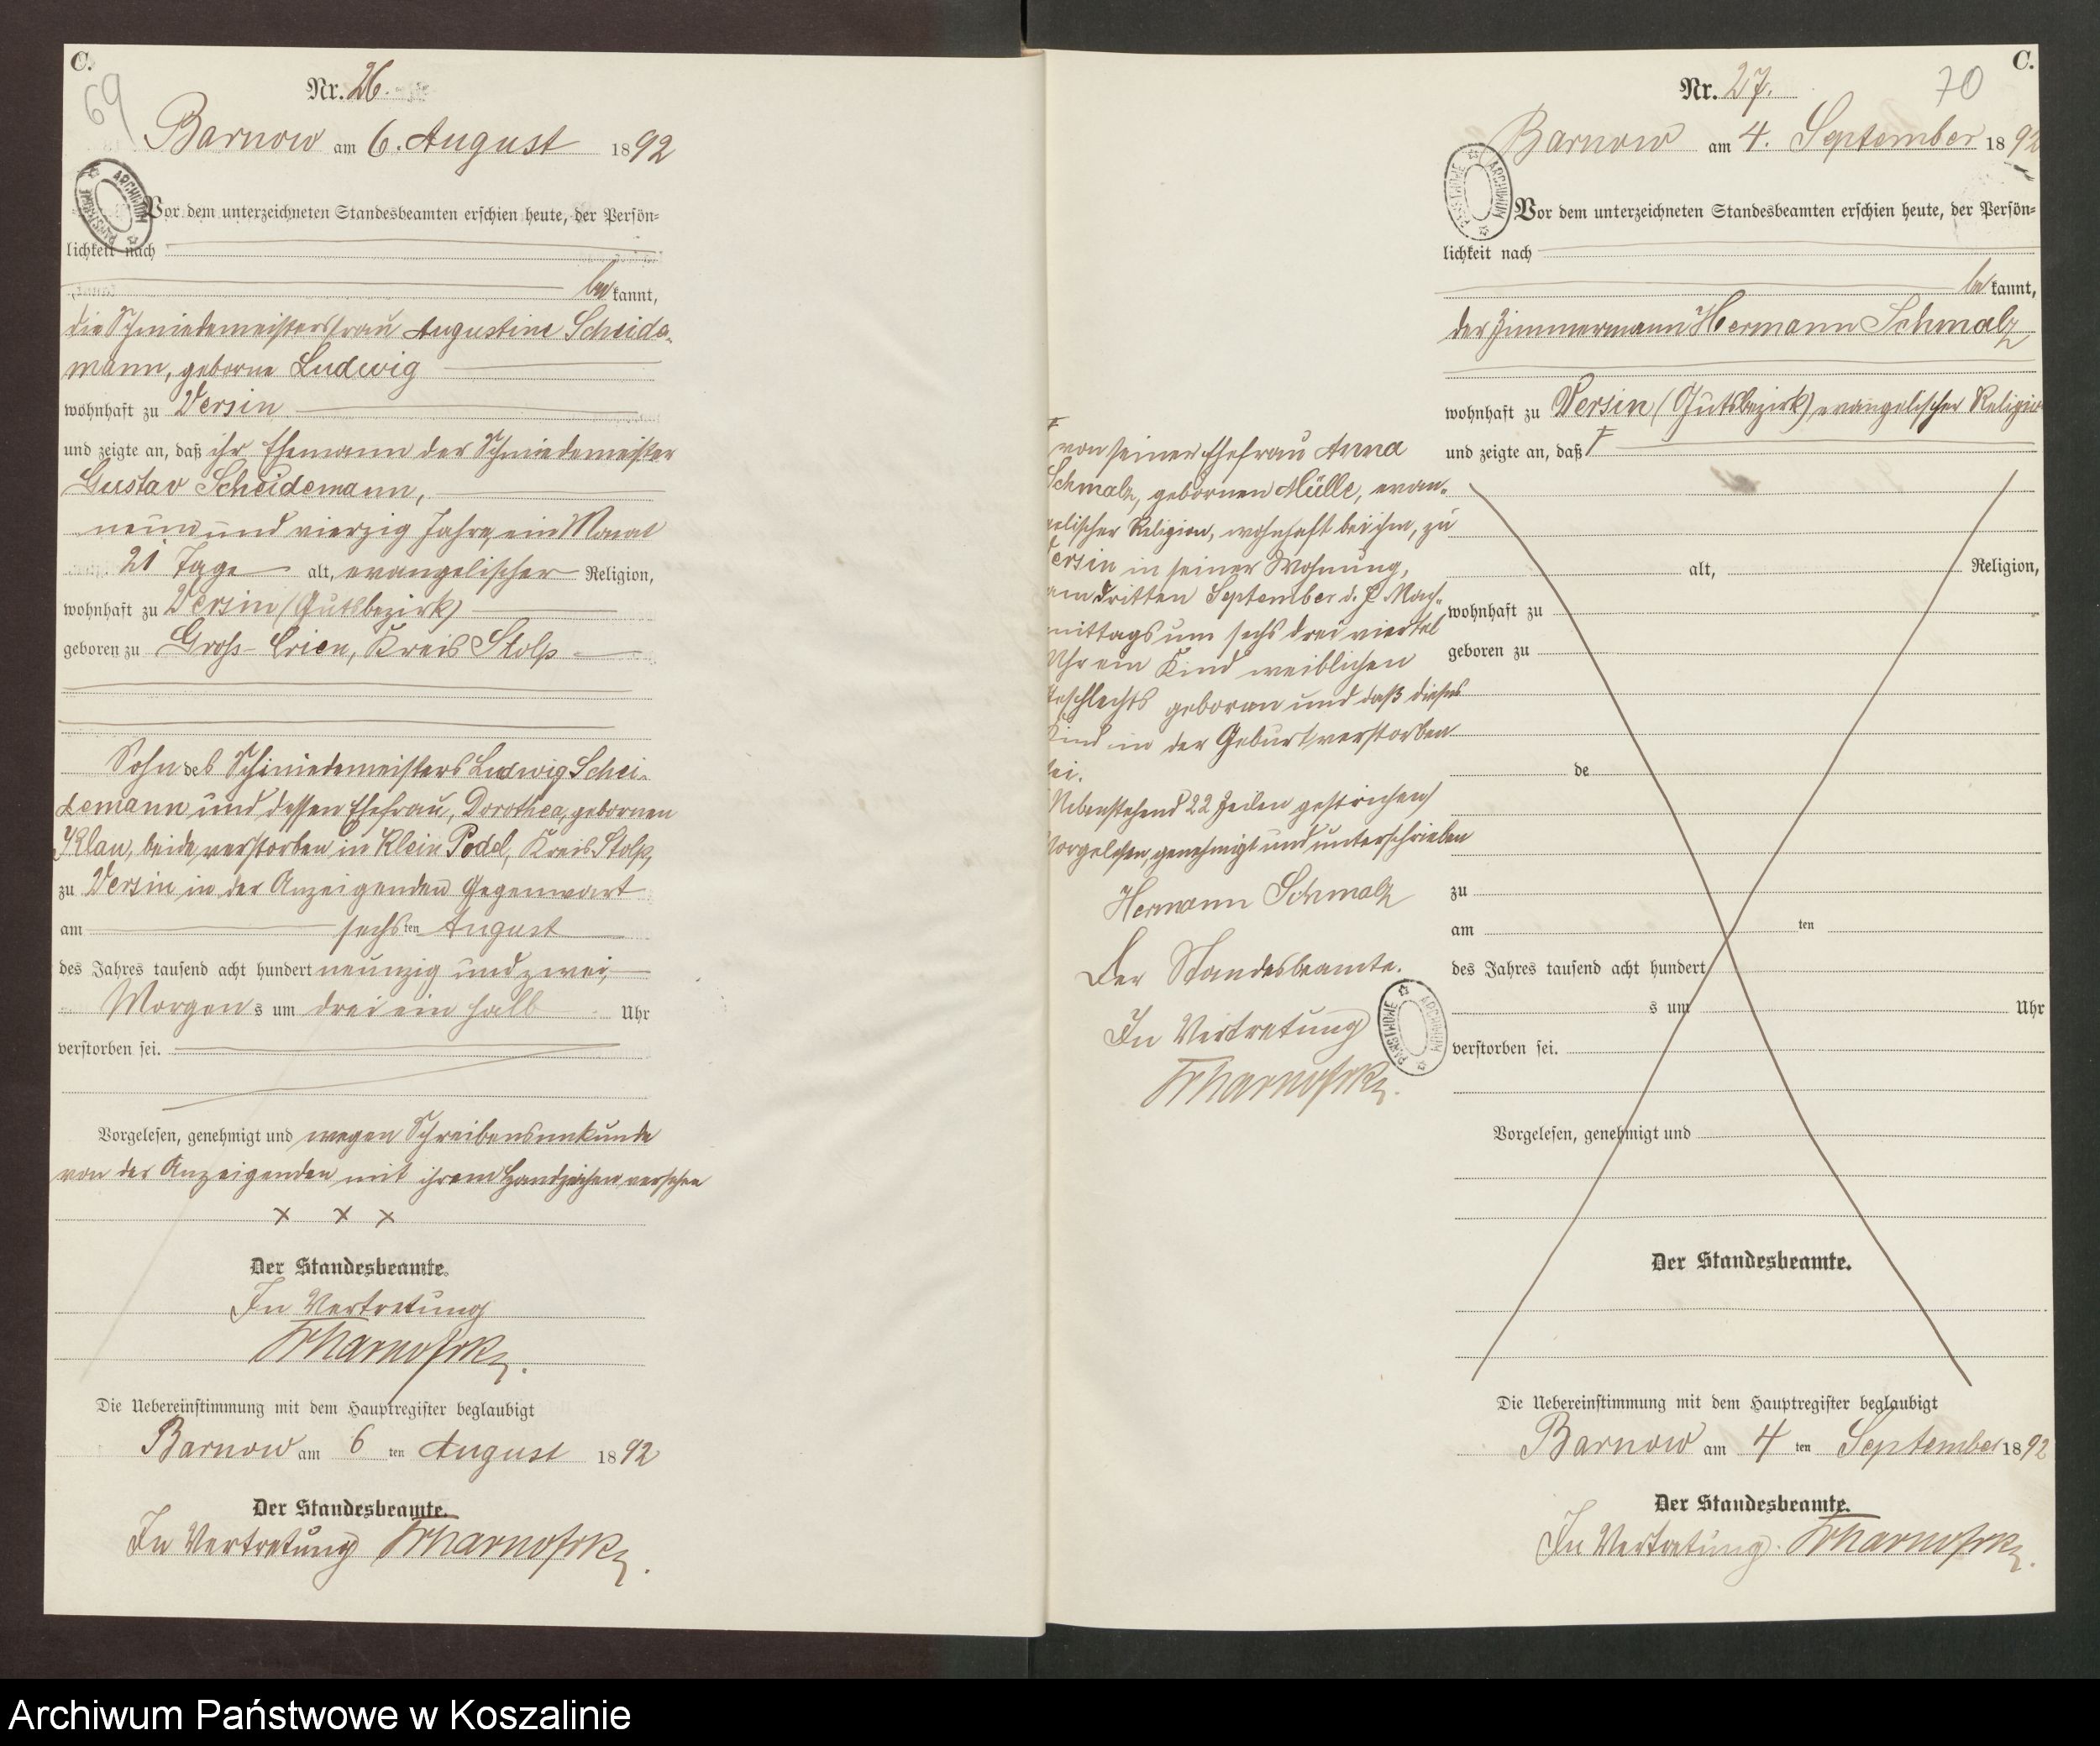 C.
69
Nr. 26.
Barnow am 6. August 1892
ARCHIWUM PAŃSTWOWE
Vor dem unterzeichneten Standesbeamten erschien heute, der Persön-
lichkeit nach
be kannt,
die Schmiedemeistersfrau Augustine Scheide-
mann, geborne Ludwig
wohnhaft zu Versin
und zeigte an, daß ihr Ehemann der Schmiedemeister
Gustav Scheidemann,
neun und vierzig Jahre, ein Monat
21 Tage alt, evangelischer Religion,
wohnhaft zu Versin (Gutsbezirk)
geboren zu Groß-Crien, Kreis Stolp
Sohn des Schmiedemeisters Ludwig Schei-
demann und dessen Ehefrau, Dorothea, gebornen
Klau, beide verstorben in Klein Podel, Kreis Stolp,
zu Versin in der Anzeigenden Gegenwart
am sechs ten August
des Jahres tausend acht hundert neunzig und zwei,
Morgen s um drei ein halb Uhr
verstorben sei.
Vorgelesen, genehmigt und wegen Schreibensunkunde
von der Anzeigenden mit ihrem Handzeichen versehen
x x x
Der Standesbeamte.
In Vertretung
Die Uebereinstimmung mit dem Hauptregister beglaubigt
Barnow am 6 ten August 1892
Der Standesbeamte.
In Vertretung
C.
70
Nr. 27.
Barnow am 4. September 1892
ARCHIWUM PAŃSTWOWE
Vor dem unterzeichneten Standesbeamten erschien heute, der Persön-
lichkeit nach
be kannt,
der Zimmermann Hermann Schmalz
wohnhaft zu Versin (Gutsbezirk) evangelischer Religion
und zeigte an, daß F
F
von seiner Ehefrau Anna
Schmalz, gebornen Mülle, evan-
gelischer Religion, wohnhaft bei ihm, zu
Versin in seiner Wohnung,
am dritten September d. J. Nach-
mittags um sechs drei viertel
Uhr ein Kind weiblichen
Geschlechts geboren und daß dieses
Kind in der Geburt verstorben
sei.
Nebenstehend 22 Zeilen gestrichen
Vorgelesen, genehmigt und unterschrieben
Hermann Schmalz
Der Standesbeamte.
In Vertretung
ARCHIWUM PAŃSTWOWE
alt, Religion,
wohnhaft zu
geboren zu
de
zu
am ten
des Jahres tausend acht hundert
s um Uhr
verstorben sei.
Vorgelesen, genehmigt und
Der Standesbeamte.
Die Uebereinstimmung mit dem Hauptregister beglaubigt
Barnow am 4 ten September 1892
Der Standesbeamte.
In Vertretung
Archiwum Państwowe w Koszalinie